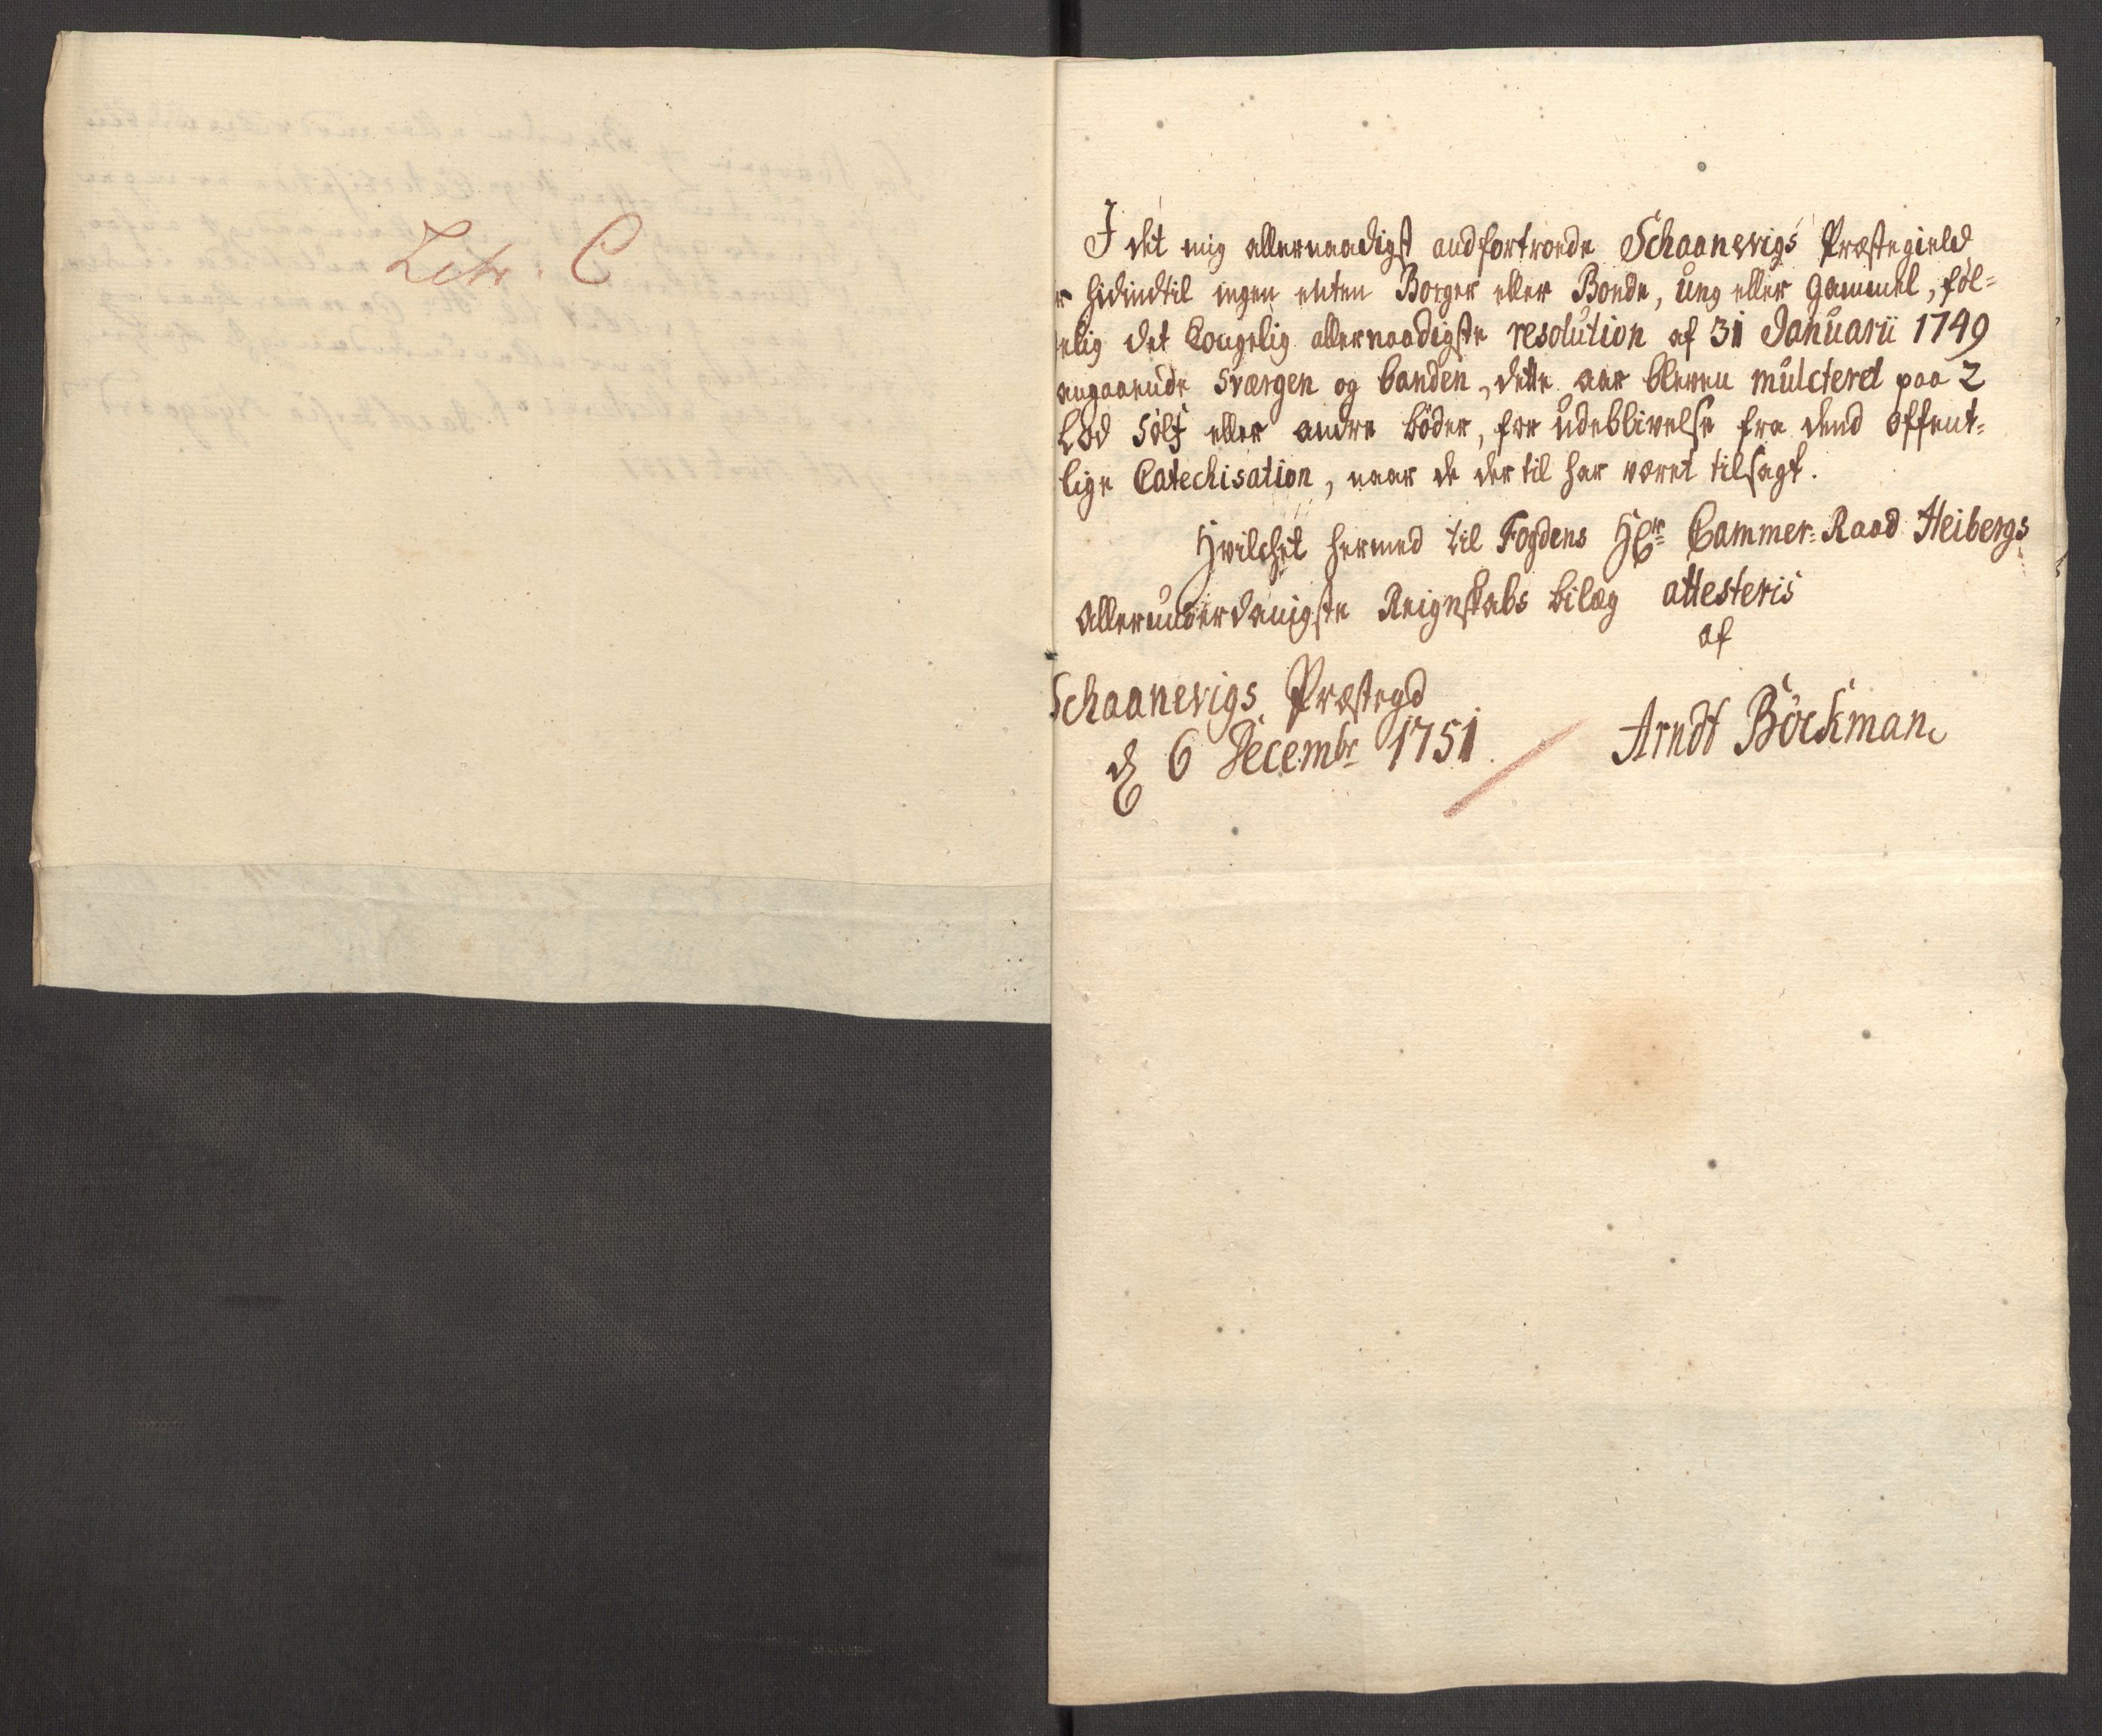 Litr. C
I det mig allernaadigst andfortroede Schaanevigs Præstegield
r hidindtil ingen enten Borger eller Bonde, ung eller gammel, føl-
elig det Kongelig allernaadigste resolution af 31 Januarii 1749
angaaende sværgen og banden, dette aar bleven mulcteret paa 2
Lod Sølf eller andre bøder, for udeblivelse fra dend offent-
lige Catechisation, naar de der til har været tilsagt.
Hvilchet hermed til Fogdens Hr Cammer-Raad Heibergs
allerunderdanigste Reignskabs bilag attesteris
af
Schaanevigs Præstegd
d 6 Decembr 1751
Arndt Böckman